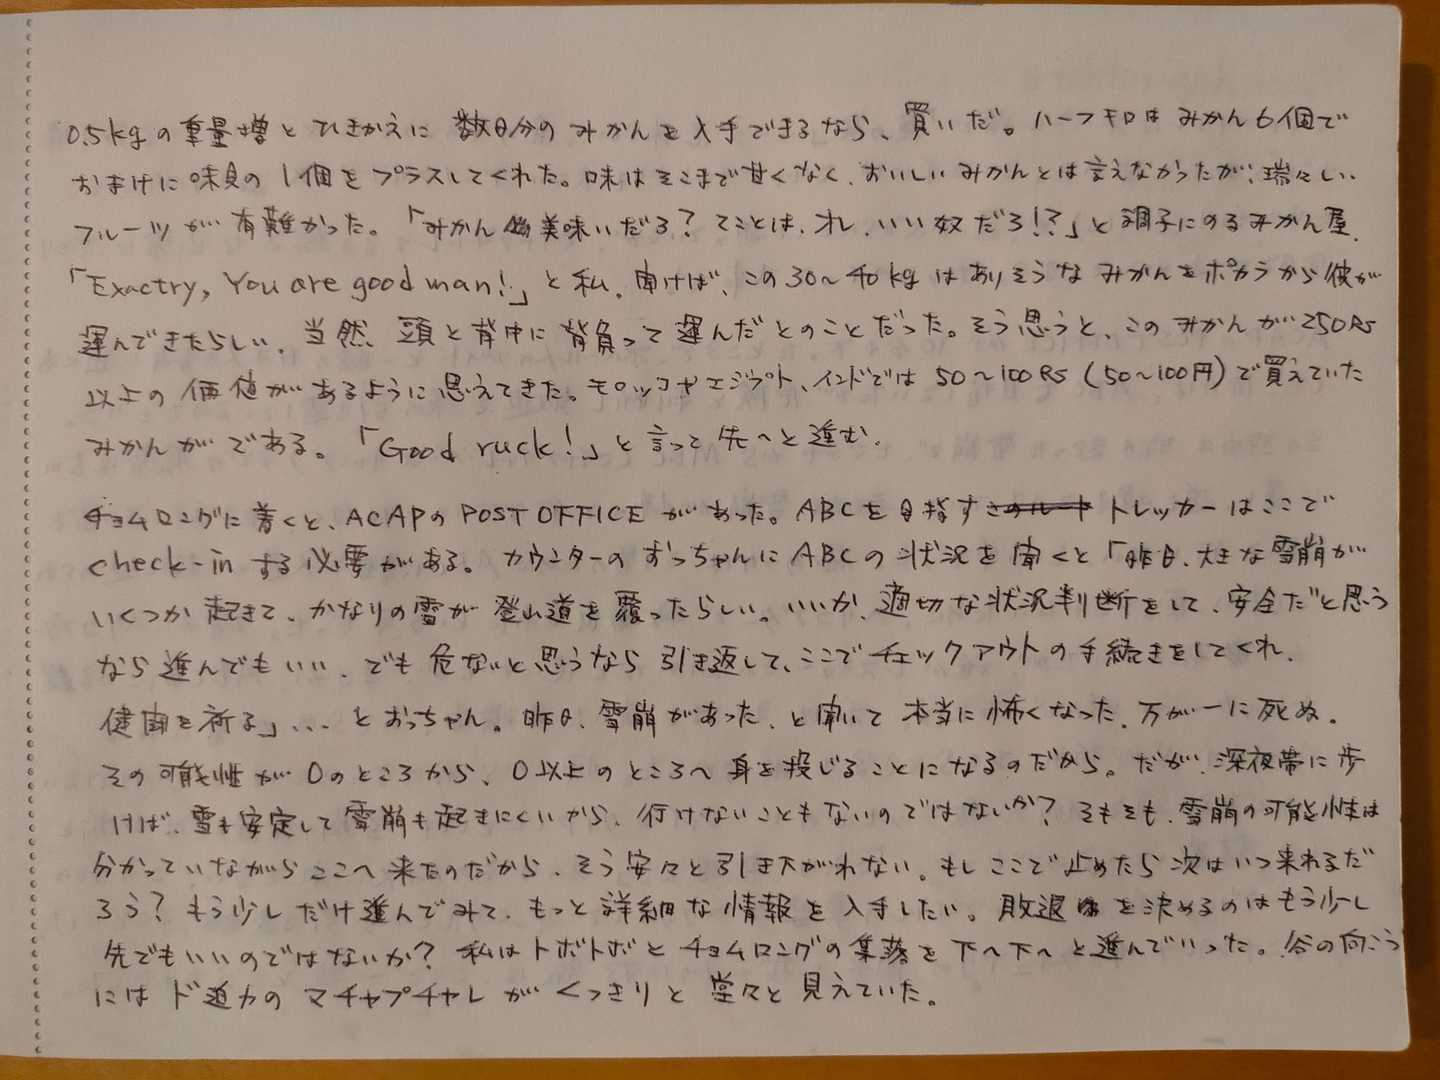 0.5kgの重量増とひきかえに 数日分のみかんを入手できるなら、買いだ。ハーフキロはみかん6個で
おまけに味見の1個をプラスしてくれた。味はそこまで甘くなく、おいしいみかんとは言えなかったが、瑞々しい
フルーツが有難かった。「みかん美味いだろ？てことは、オレ、いい奴だろ!?」と調子にのるみかん屋、
「Exactry, You are good man!」と私。聞けば、この30〜40kgはありそうなみかんをポカラから彼が
運んできたらしい、当然、頭と背中に背負って運んだとのことだった。そう思うと、このみかんが250Rs
以上の価値があるように思えてきた。モロッコやエジプト、インドでは50〜100Rs（50〜100円）で買えていた
みかんがである。「Good ruck!」と言って先へと進む。
チョムロングに着くと、ACAPのPOST OFFICEがあった。ABCを目指すトレッカーはここで
check-inする必要がある。カウンターのおっちゃんにABCの状況を聞くと「昨日、大きな雪崩が
いくつか起きて、かなりの雪が登山道を覆ったらしい。いいか、適切な状況判断をして、安全だと思う
なら進んでもいい、でも危ないと思うなら引き返して、ここでチェックアウトの手続きをしてくれ、
健闘を祈る」...とおっちゃん。昨日、雪崩があった、と聞いて本当に怖くなった、万が一に死ぬ。
その可能性が0のところから、0以上のところへ身を投じることになるのだから。だが、深夜帯に歩
けば、雪も安定して雪崩も起きにくいから、行けないこともないのではないか？そもそも、雪崩の可能性は
分かっていながらここへ来たのだから、そう安々と引き下がれない。もしここで止めたら次はいつ来れるだ
ろう？もう少しだけ進んでみて、もっと詳細な情報を入手したい。敗退を決めるのはもう少し
先でもいいのではないか？私はトボトボとチョムロングの集落を下へ下へと進んでいった。谷の向こう
にはド迫力のマチャプチャレがくっきりと堂々と見えていた。